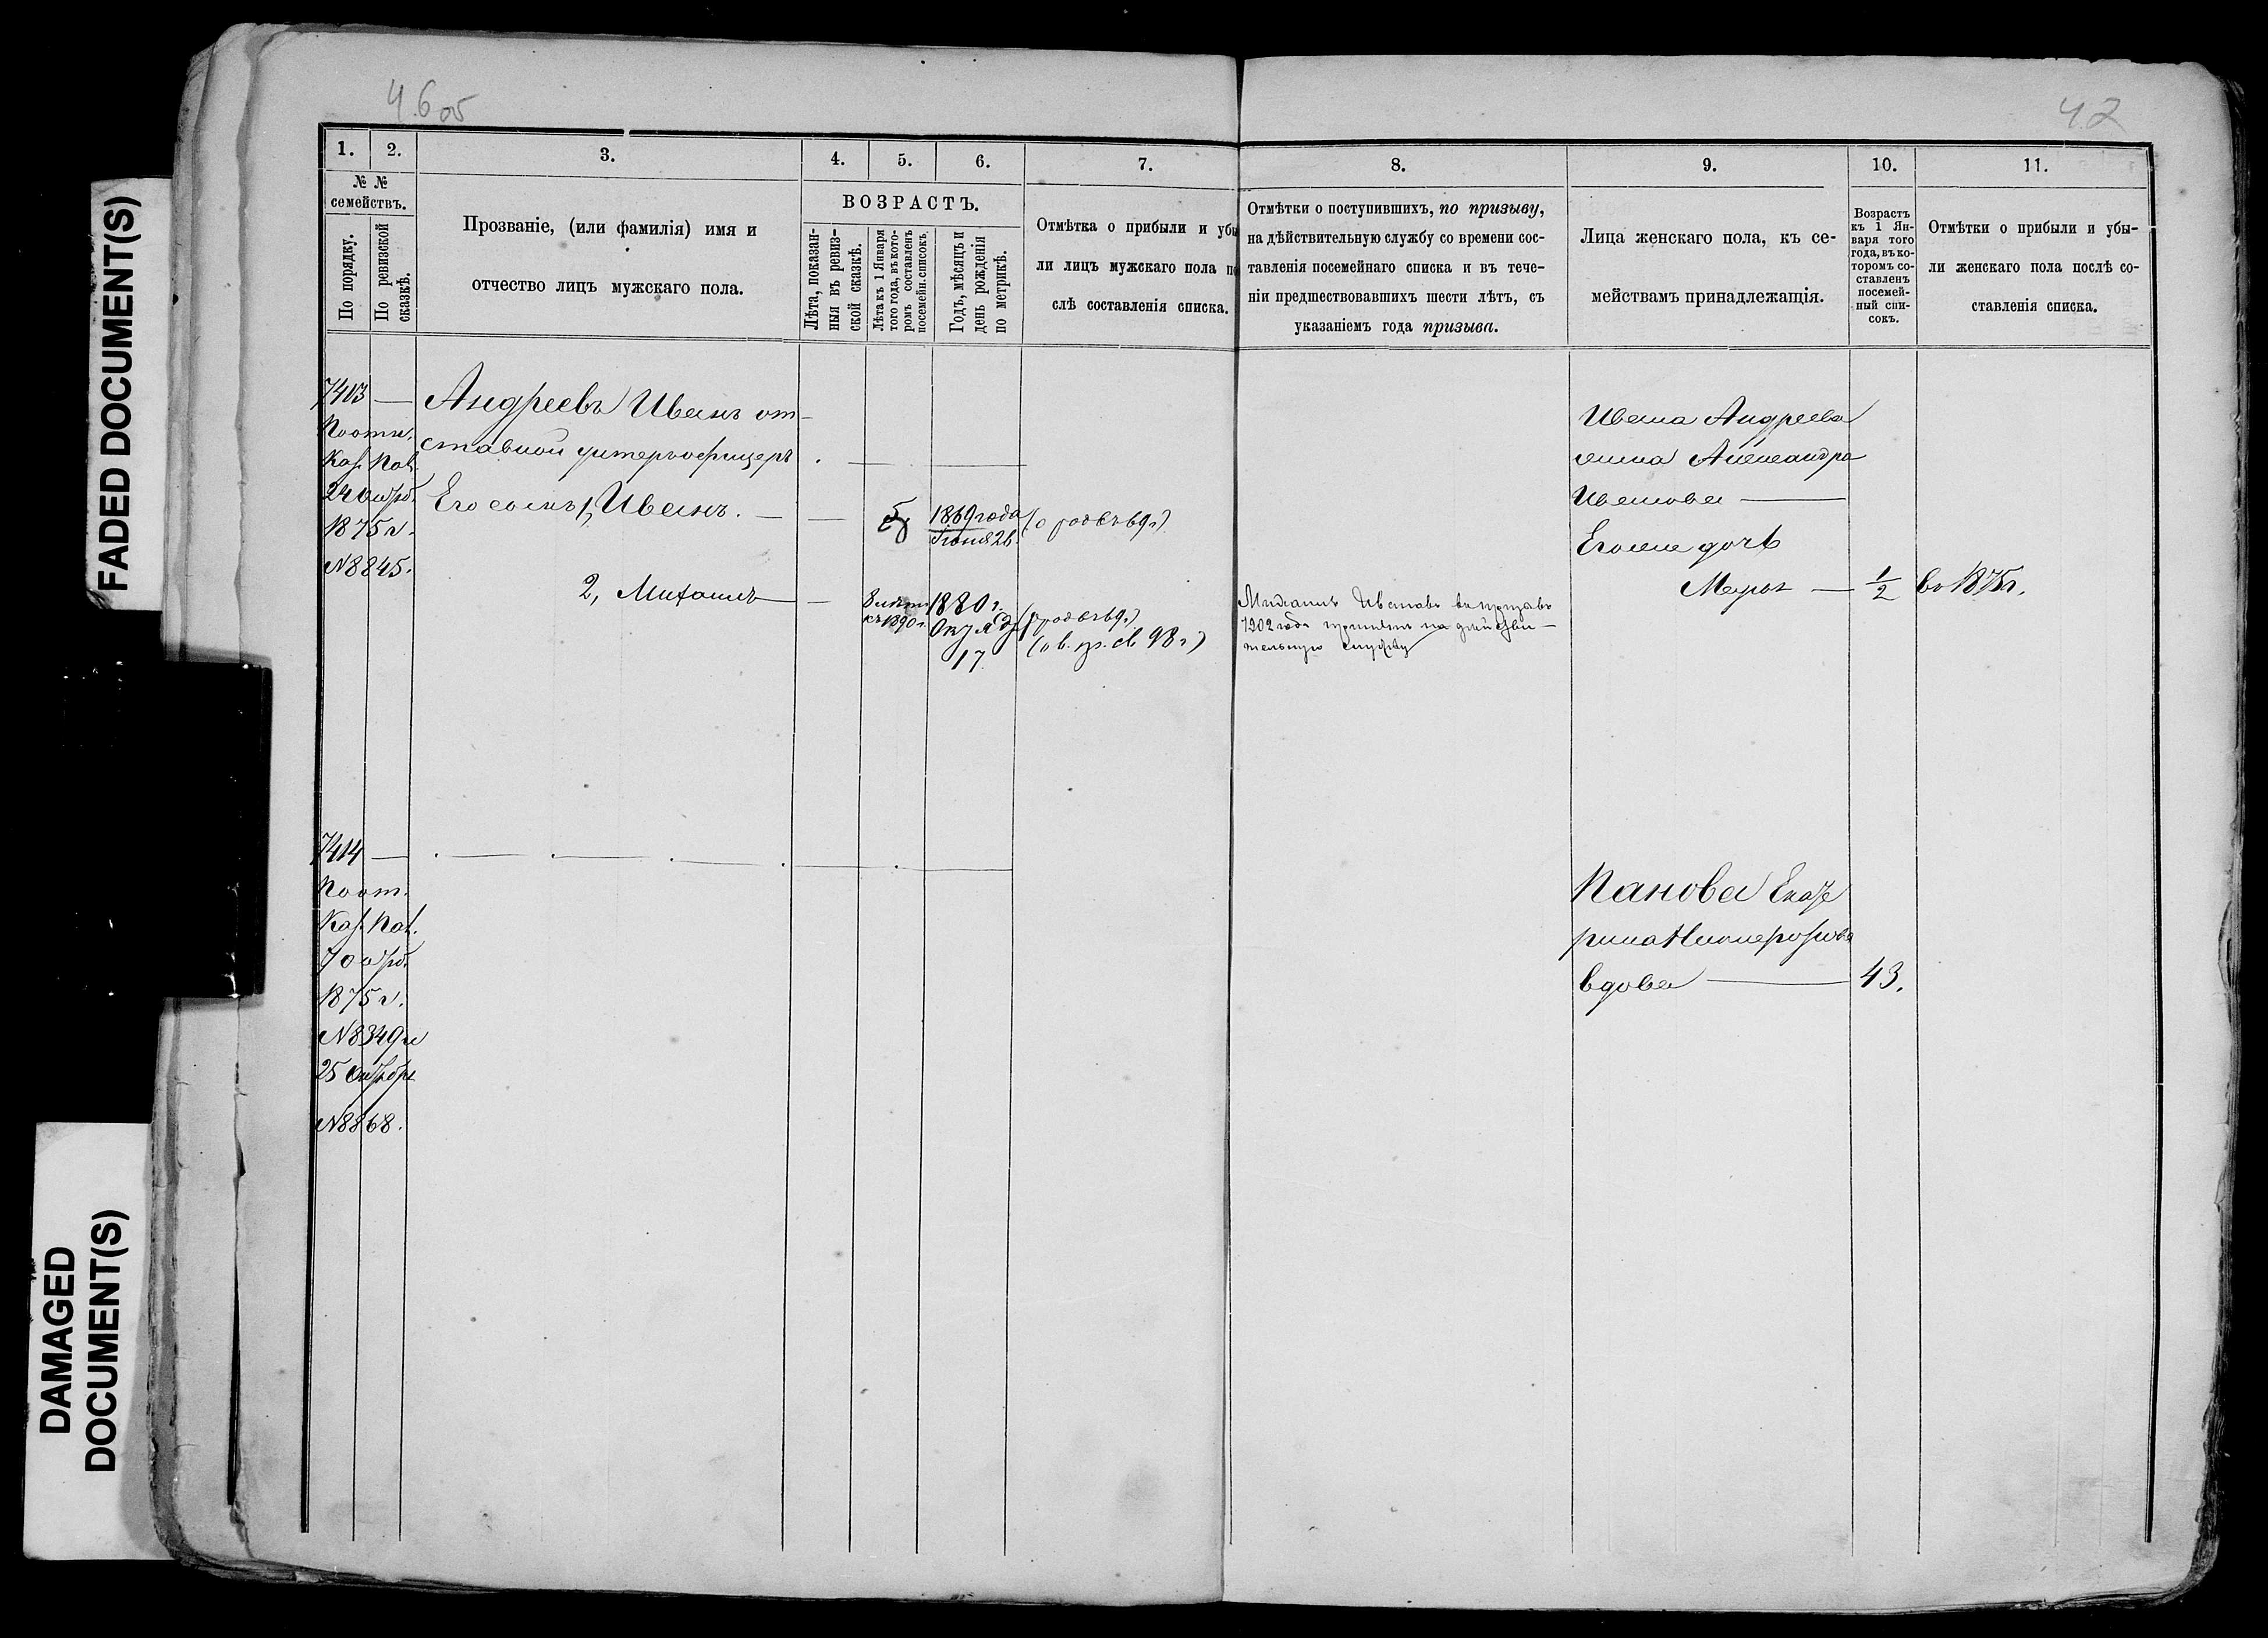 FADED DOCUMENT(S)
DAMAGED
DOCUMENT(S)
42
1.
2.
3.
4.
5.
6.
7.
8.
9.
10.
11.
№ №
семействъ.
По порядку.
По ревизской
сказкѣ.
Прозваніе, (или фамилія) имя и
отчество лицъ мужскаго пола.
ВОЗРАСТЪ.
Лѣта, показан-
ныя въ ревиз-
ской сказкѣ.
Лѣта къ 1 Января
того года, въ кото-
ромъ составленъ
посемейн. списокъ.
Годъ, мѣсяцъ и
день рожденія
по метрикѣ.
Отмѣтка о прибыли и убы
ли лицъ мужскаго пола по
слѣ составленія списка.
Отмѣтки о поступившихъ, по призыву,
на дѣйствительную службу со времени сос-
тавленія посемейнаго списка и въ тече-
ніи предшествовавшихъ шести лѣтъ, съ
указаніемъ года призыва.
Лица женскаго пола, къ се-
мействамъ принадлежащія.
Возрастъ
къ 1 Ян-
варя того
года, въ ко-
торомъ со-
ставленъ
посемей-
ный спи-
сокъ.
Отмѣтки о прибыли и убы-
ли женскаго пола послѣ со-
ставленія списка.
7413 —
По отн.
Каз. Пал.
1875 г.
N 8845.
Андреевъ Иванъ от-
ставной унтеръ-офицеръ
Его сынъ 1, Иванъ. —
1869 года
Іюня 26.
2, Михаилъ —
1880 г.
17.
Михаилъ Ивановъ въ призывъ
1902 года принятъ на дѣйстви-
тельную службу
Ивана Андреева
жена Александра
Иванова —
Его же дочь
Марья — 1/2
въ 1875 г.
7414 —
По от.
Каз. Пал.
1875 г.
N 8349 и
25 Октября
N 8868.
Панова Екате
рина Никифорова
вдова — 43.